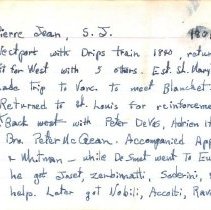 Pierre Jean, S. J. 180
Westport with Drips train 1840 retur
for West with 5 others. Est. St. Mary
ade trip to Vanc. to meet Blanchet.
Returned to St. Louis for reinforceme
Back west with Peter DeVos, Adrien H
Bro. Peter McGean. Accompanied App
& Whitman - while De Smet went to Eu
he got Joset, Zerbinatti, Soderini,
helps. Later got Nobili, Accolti, Rav